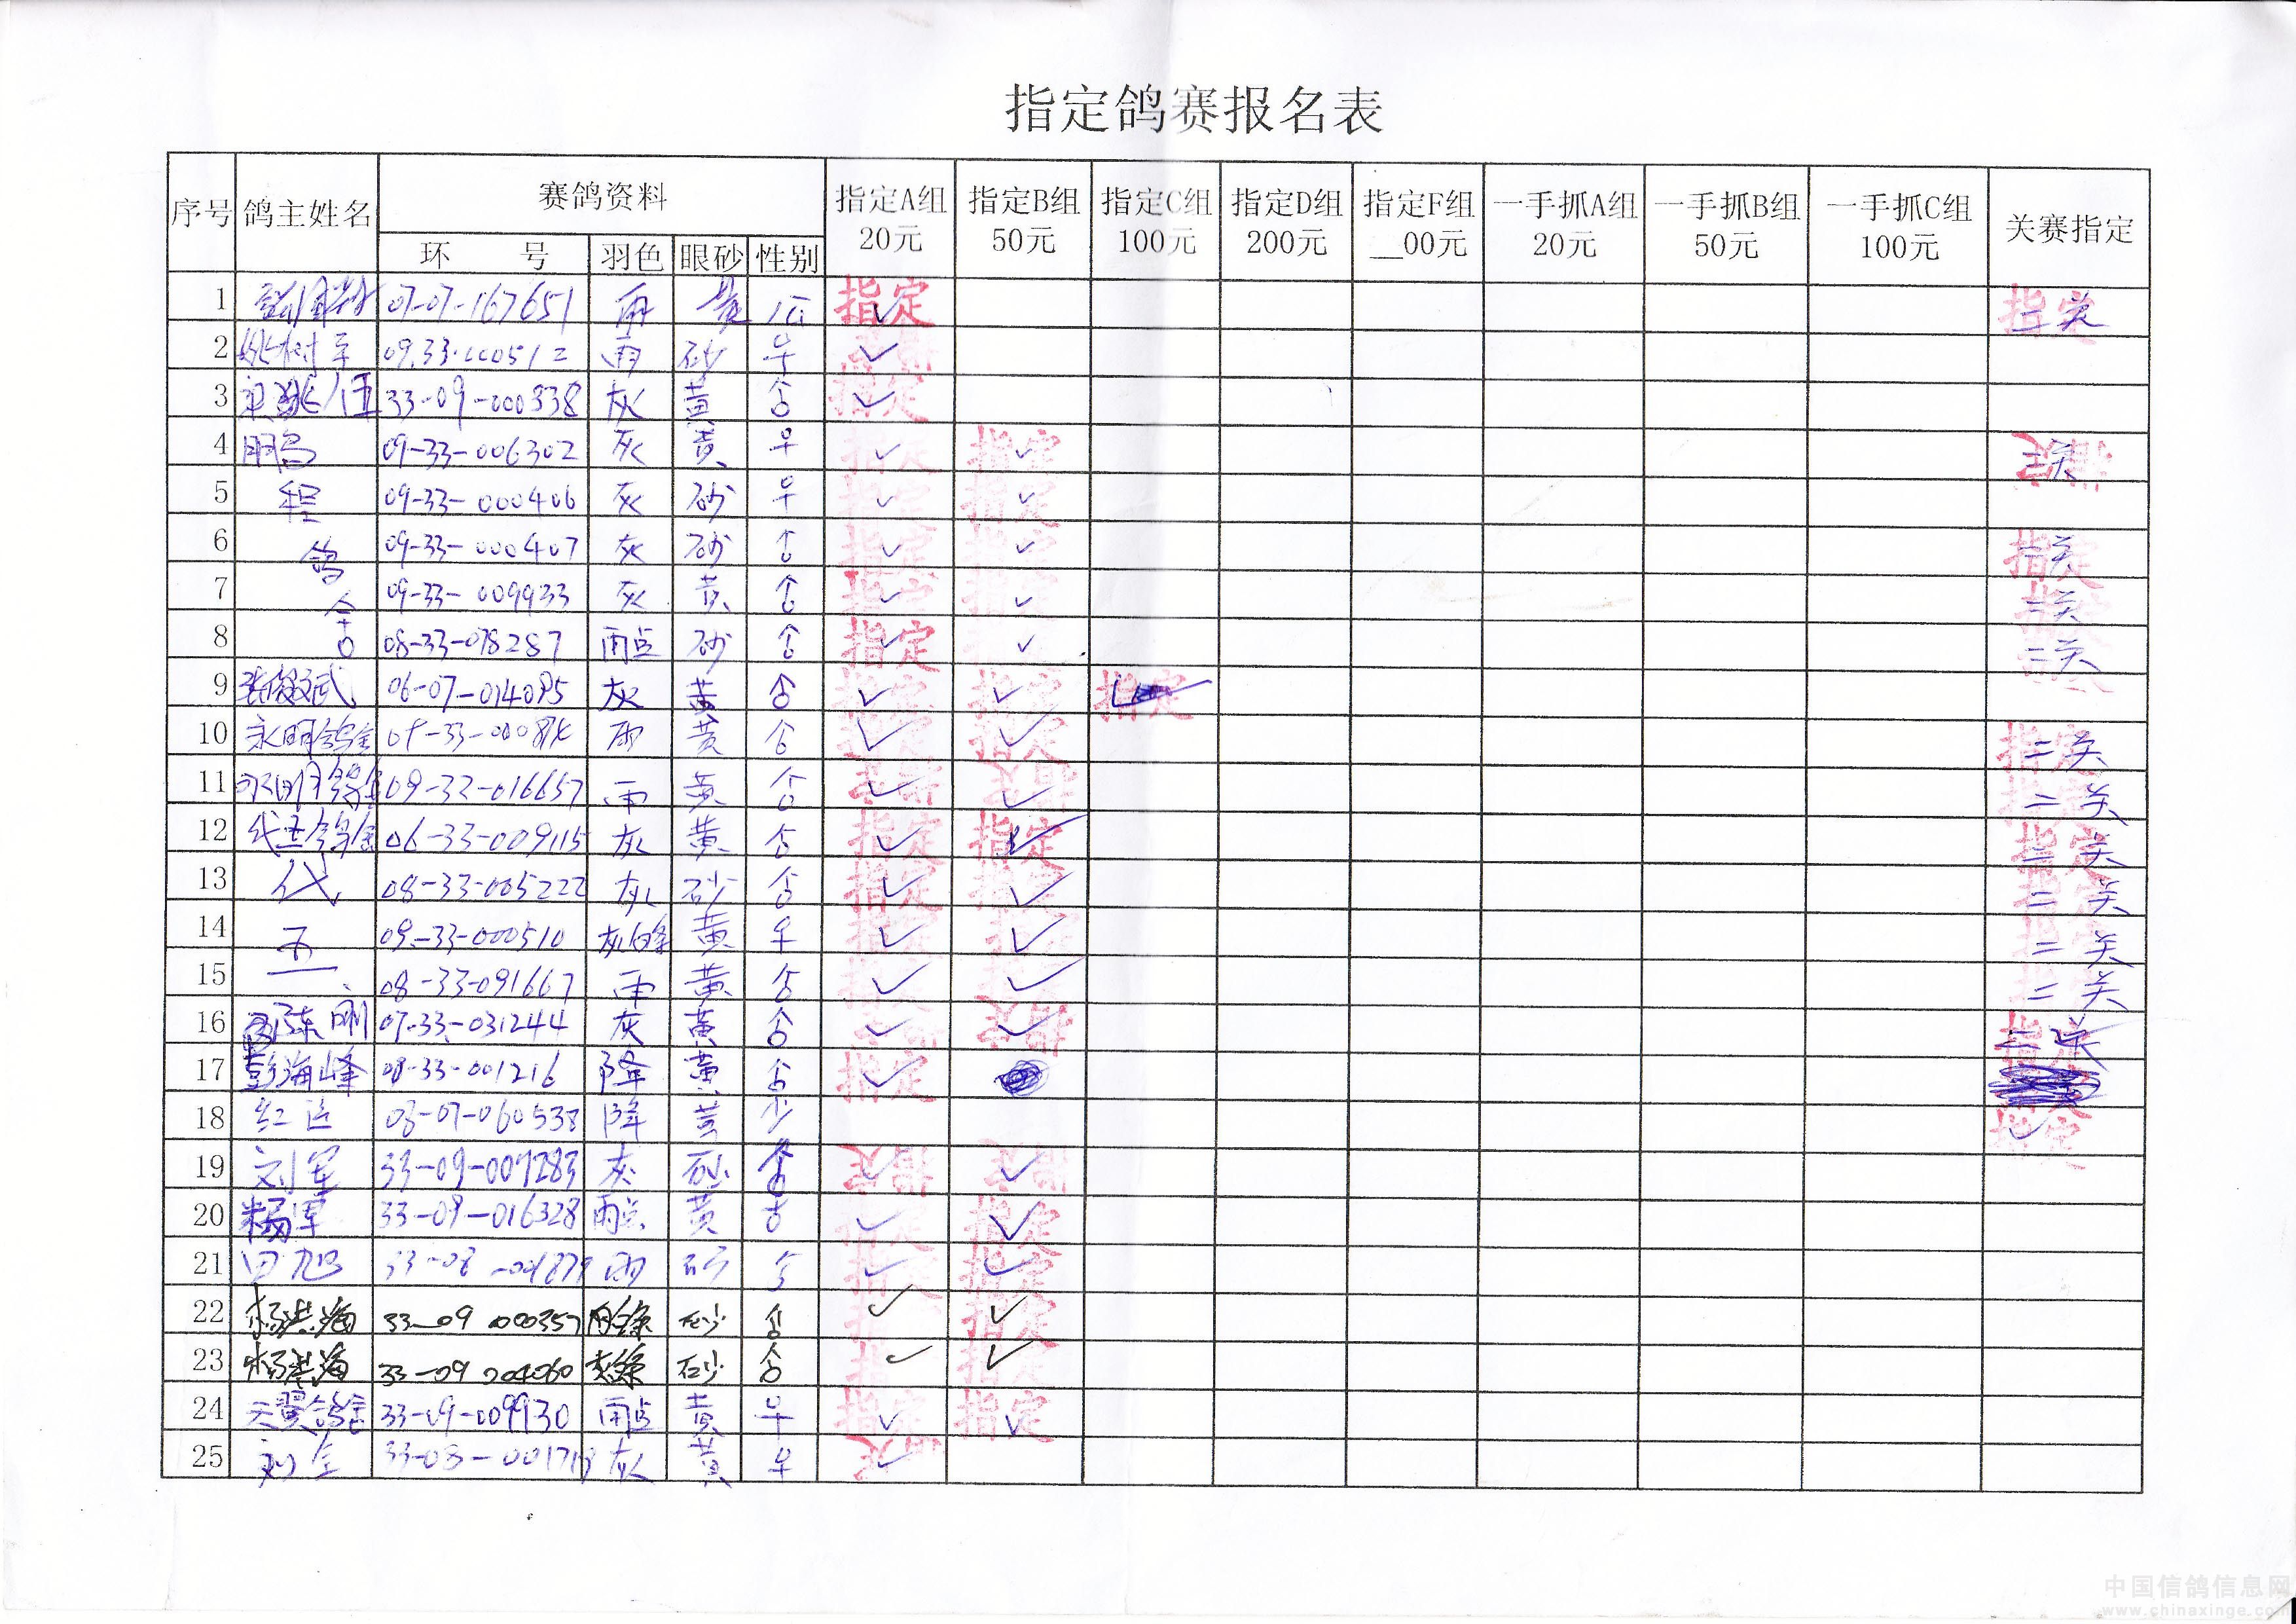 指定鸽赛报名表
序号 鸽主姓名 赛鸽资料 指定A组 20元 指定B组 50元 指定C组 100元 指定D组 200元 指定F组 __00元 一手抓A组 20元 一手抓B组 50元 一手抓C组 100元 关赛指定
环 号 羽色 眼砂 性别
1 07-07-167651 雨 黄 指定 ✓ 指定 二关
2 姚树军 雨 砂 ♀ ✓
3 33-09-000838 灰 黄 ♂ 指定 ✓
4 朋鸟 09-33-006302 灰 黄 ♀ 指定 ✓ 指定 ✓ 二关
5 程 09-33-000406 灰 砂 ♀ 指定 ✓ 指定 ✓
6 鸽 09-33-000407 灰 砂 ♂ 指定 ✓ ✓ 指定 二关
7 舍 09-33-009933 灰 黄 ♂ 指定 ✓ 指定 ✓ 二关
8 08-33-078287 雨点 砂 ♂ 指定 ✓ ✓ 二关
9 06-07-014085 灰 黄 ♂ 指定 ✓ 指定 ✓ 指定
10 永明鸽舍 雨 黄 ♂ 指定 ✓ 指定 ✓ 指定 二关
11 永明鸽舍 雨 黄 ♂ 指定 ✓ 指定 ✓ 二关
12 06-33-009115 灰 黄 ♂ 指定 ✓ 指定 ✓ 指定 二关
13 代 08-33-005222 灰 砂 ♂ 指定 ✓ ✓ 指定 二关
14 09-33-000510 灰白条 黄 ♀ 指定 ✓ ✓ 指定 二关
15 08-33-091667 雨 黄 ♂ ✓ ✓ 二关
16 07-33-031244 灰 黄 ♂ ✓ 指定 ✓ 指定 二关
17 彭海峰 08-33-001216 降 黄 ♂ 指定 ✓
18 08-07-060538 降 黄 指定 ✓
19 刘军 33-09-007283 灰 砂 ♂ 指定 ✓ 指定 ✓
20 杨军 33-09-016328 雨点 黄 指定 ✓ 指定 ✓
21 田旭 雨 砂 ♂ 指定 ✓ 指定 ✓
22 杨洪海 33-09 000357 雨白条 砂 ♂ ✓ 指定 ✓
23 杨洪海 33-09 004060 灰白条 砂 ♂ ✓ 指定 ✓
24 天翼鸽舍 33-09-009930 雨点 黄 ♀ 指定 ✓ 指定 ✓
25 灰 黄 ♀ 指定 ✓
中国信鸽信息网
www.chinaxinge.com